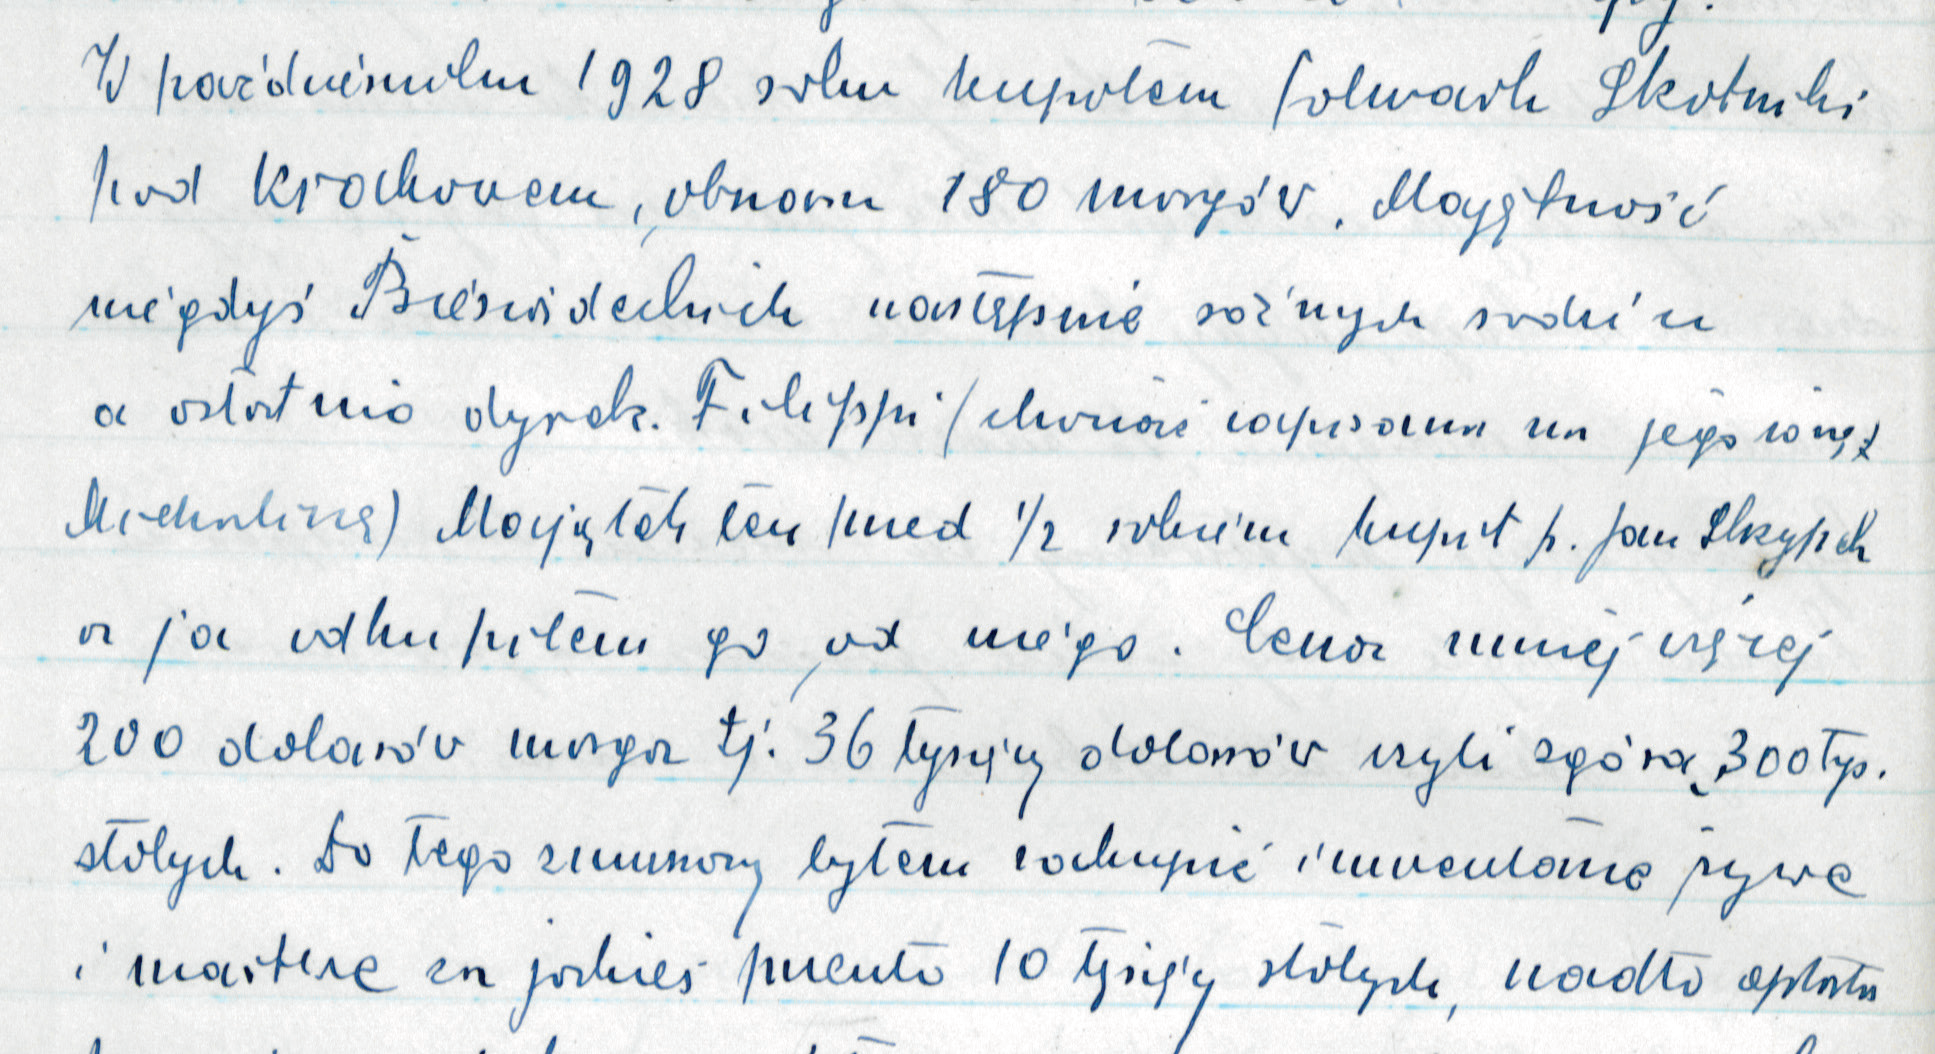 W październiku 1928 roku kupiłem folwark Skotniki
pod Krakowem, obszaru 180 morgów. Majętność
niegdyś następnie różnych rodzin
a ostatnio dyrek. Filippi (chociaż zapisana na jego żonę
Michalinę) Majątek ten przed 1/2 rokiem kupił p. Jan Skrzypek
a ja odkupiłem go od niego. Cena mniej więcej
200 dolarów morga tj. 36 tysięcy dolarów czyli zgórą 300 tys.
złotych. Do tego zmuszony byłem zakupić inwentarze żywe
i martwe za jakieś przeszło 10 tysięcy złotych, nadto opłata